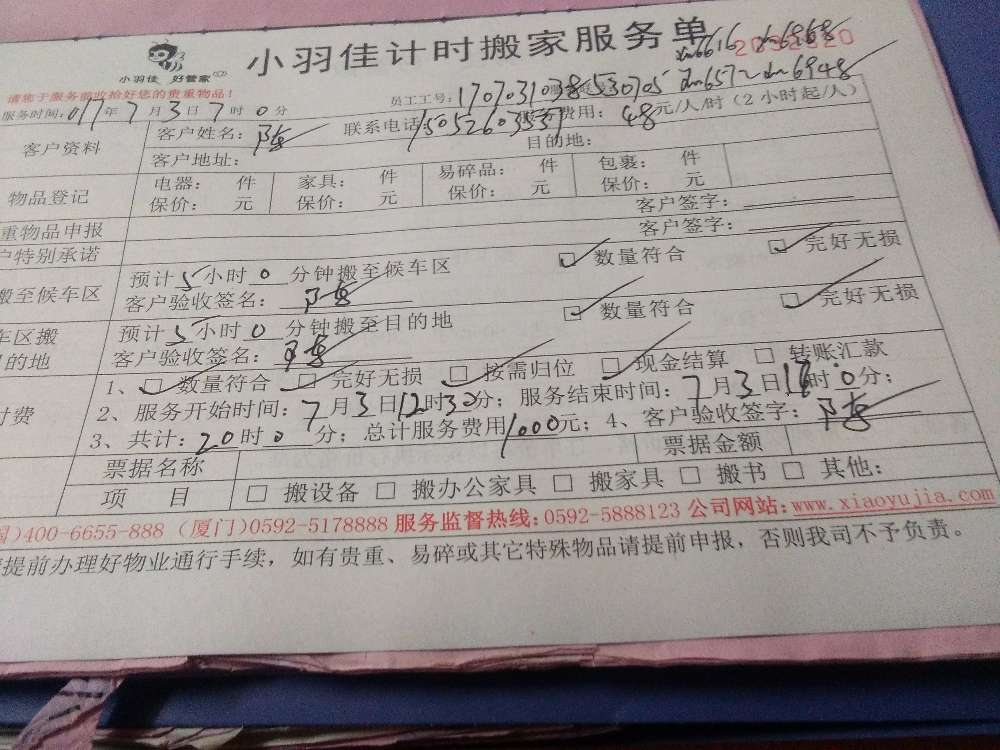 小羽佳计时搬家服务单
小羽佳 好管家
请您于服务前收拾好您的贵重物品！
dn6572 dn6948
服务时间：017年7月3日7时0分 员工工号：1707031038 530705
客户资料 客户姓名：陈 联系电话：15052603531 费用：48元/人/时（2小时起/人）
客户地址： 目的地：
物品登记 电器： 件 家具： 件 易碎品： 件 包裹： 件
保价： 元 保价： 元 保价： 元 保价： 元
重物品申报 客户签字：
户特别承诺 客户签字：
搬至候车区 预计5小时0分钟搬至候车区 数量符合 完好无损
客户验收签名：
车区搬 预计5小时0分钟搬至目的地 数量符合 完好无损
目的地 客户验收签名：
付费 1、 数量符合 完好无损 按需归位 现金结算 转账汇款
2、服务开始时间：7月3日12时30分；服务结束时间：7月3日16时0分；
3、共计：20时0分；总计服务费用1000元；4、客户验收签字：
票据名称 票据金额
项 目 □ 搬设备 □ 搬办公家具 □ 搬家具 □ 搬书 □ 其他：
国)400-6655-888 (厦门)0592-5178888 服务监督热线：0592-5888123 公司网站：www.xiaoyujia.com
提前办理好物业通行手续，如有贵重、易碎或其它特殊物品请提前申报，否则我司不予负责。